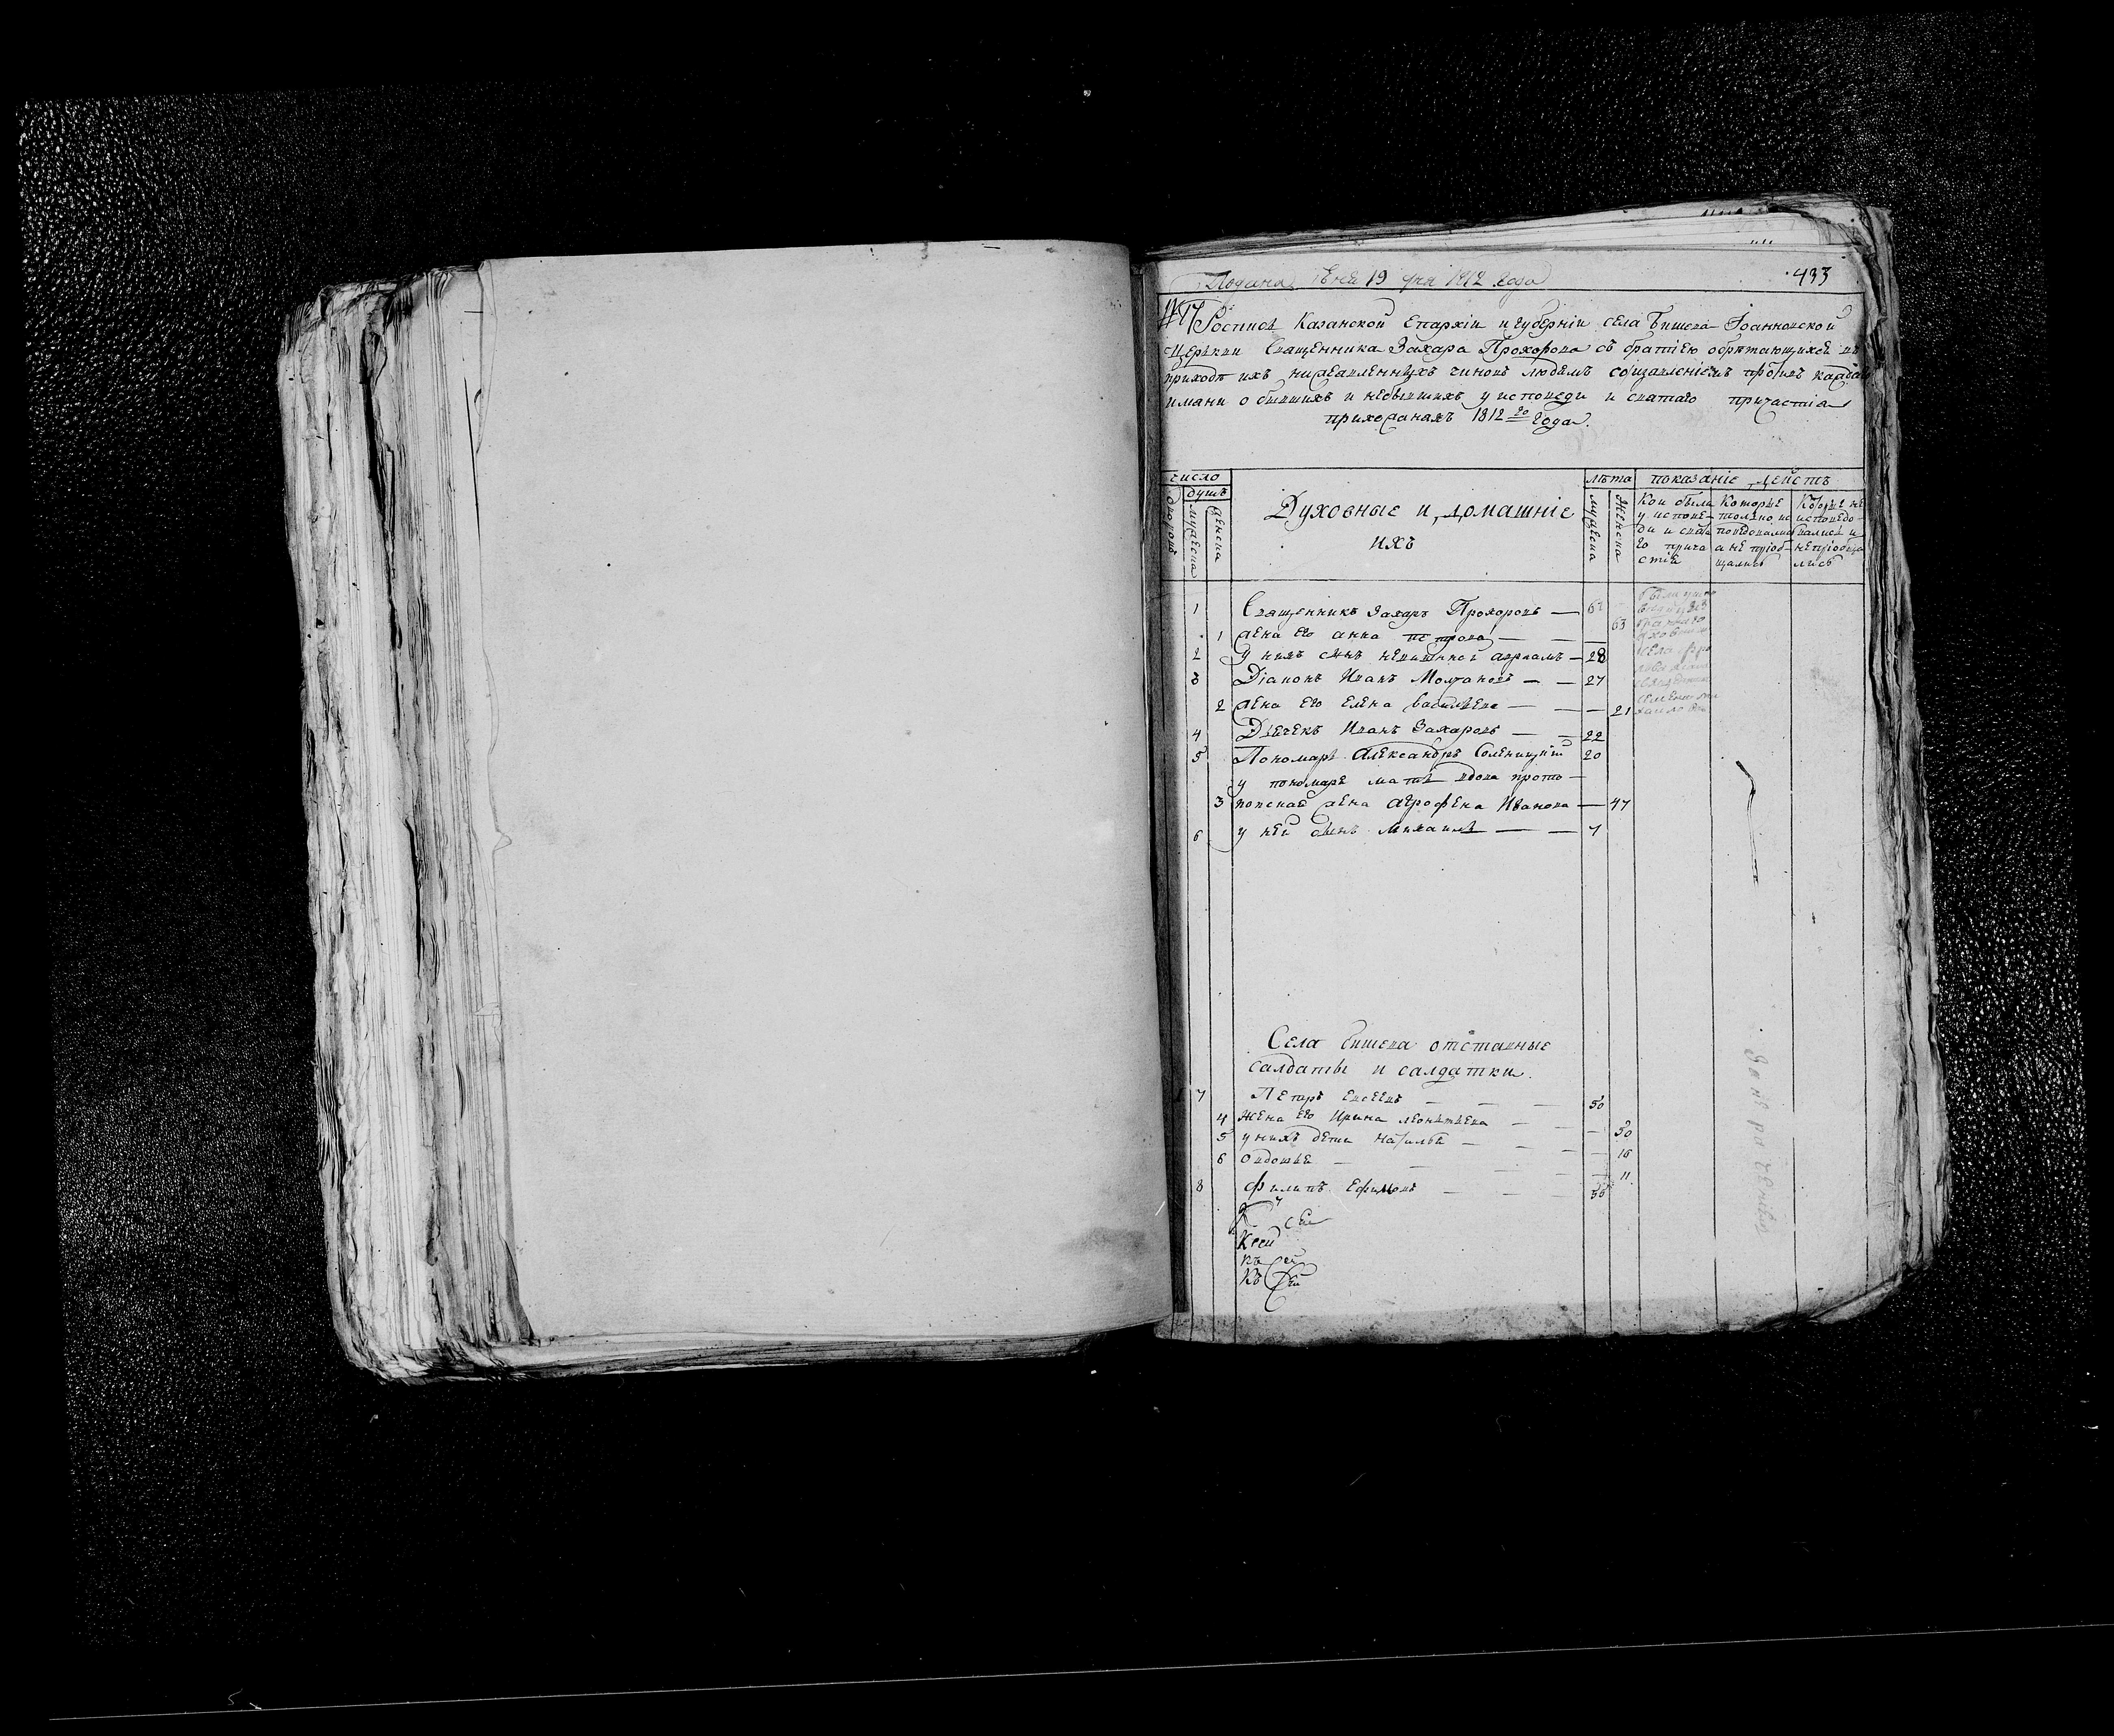 Подана 19 дня 1812 года
433
Роспись Казанской Епархіи и губерніи села Бишева Іоанновской
церкви Священника Захара Прохорова съ братіею обрѣтающихся въ
приходѣ ихъ нижеявленныхъ чиновъ людемъ противъ
имяни о бывшихъ и небывшихъ у исповеди и святаго причастія
прихожанахъ 1812 го года.
число
душъ
мужеска
женска
Духовные и домашніе
ихъ
лѣта
мужеска
женска
показаніе действъ
Кои были
у испове-
ди и свята
го прича
стія
Которые
толко ис
поведовались
а не пріоб-
щались
Которые не
исповедо-
вались и
не пріобща
лись
1 Священникъ Захаръ Прохоровъ —
1 жена его анна петрова — — 63
2 у нихъ сынъ авраамъ — 28
3 Діаконъ Иванъ Молчановъ — — 27
2 жена его елена васильева — — — 21
4 Дьячекъ Иванъ Захаровъ — — 22
5 Пономарь Александръ 20
у пономаря мать вдова прото-
3 попская жена агрофена Иванова — 47
6 у ней сынъ михаилъ — — 7
Села бишева отставные
салдаты и салдатки.
7 Петаръ евсеевъ — — — 50
4 жена его ирина леонтьева — — — 50
5 у нихъ дети наталья — — — — 16
6 овдотья — — — — 11
8 филипъ Ефимовъ — — — 55
сей
къ сей
къ сей